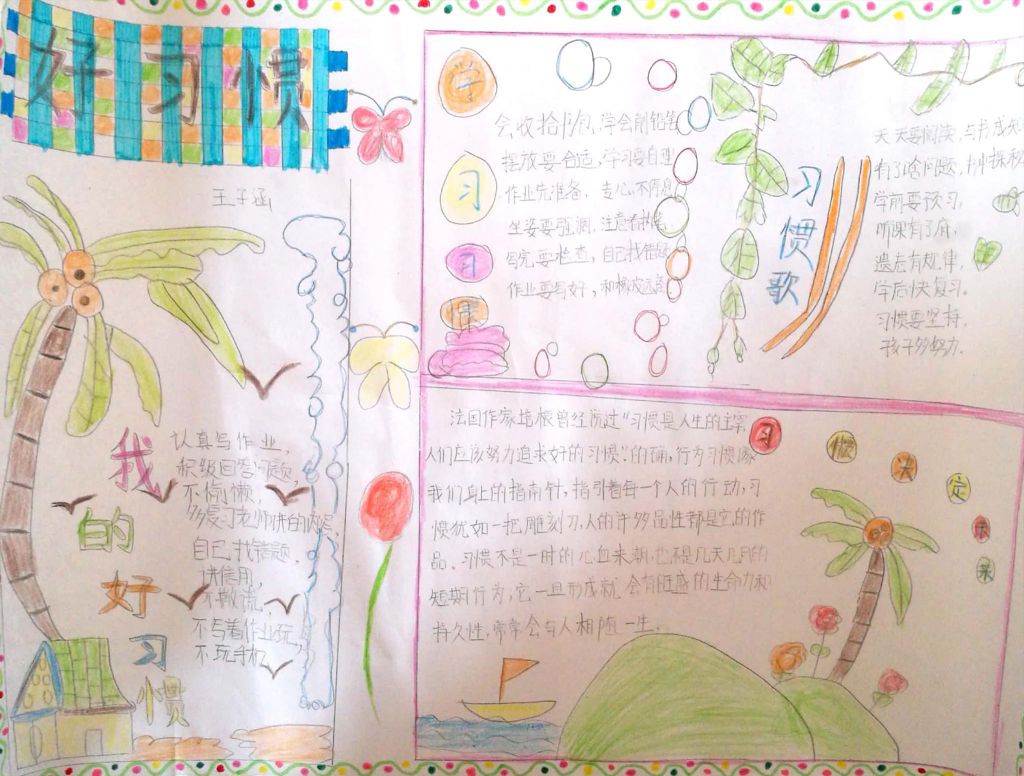 好习惯
王子涵
我的好习惯
认真写作业,
积极回答问题,
不偷懒,
多复习老师讲的内容,
自己找错题,
讲信用,
不撒谎,
不亏着作业玩,
不玩手机,
学习习惯
会收拾书包,学会削铅笔
摆放要合适,学习要自理
作业先准备,专心不
坐姿要,注意看
写完要检查,自己找错题
作业要写好,和橡皮
习惯歌
天天要阅读,与书成
有了啥问题,书中探
学前要预习,
听课有了底,
遗忘有规律,
学后快复习。
习惯要坚持,
孩子多努力.
习惯决定未来
法国作家培根曾经说过“习惯是人生的主宰,
人们应该努力追求好的习惯”.的确,行为习惯像
我们身上的指南针,指引着每一个人的行动,习
惯犹如一把雕刻刀,人的许多品性都是它的作
品、习惯不是一时的心血来潮,也不是几天几月的
短期行为,它一旦形成就会有旺盛的生命力和
持久性,常常会与人相随一生.